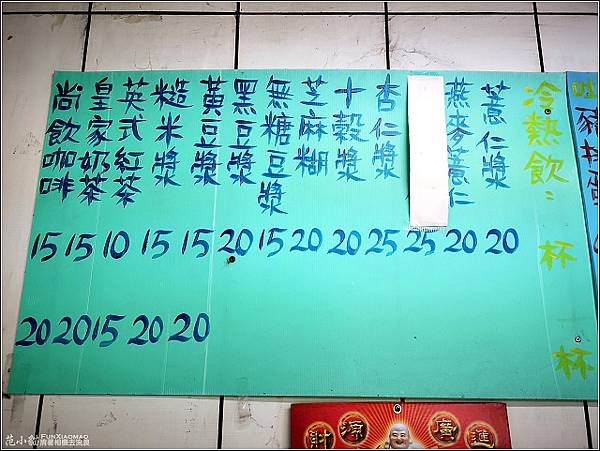 冷熱飲：杯 杯
薏仁漿 20
燕麥薏仁 20
25
杏仁漿 25
十穀漿 20
芝麻糊 20
無糖豆漿 15
黑豆漿 20
黃豆漿 15 20
糙米漿 15 20
英式紅茶 10 15
皇家奶茶 15 20
尚飲咖啡 15 20
財源廣進
范小貓 FUNXIAOMAO